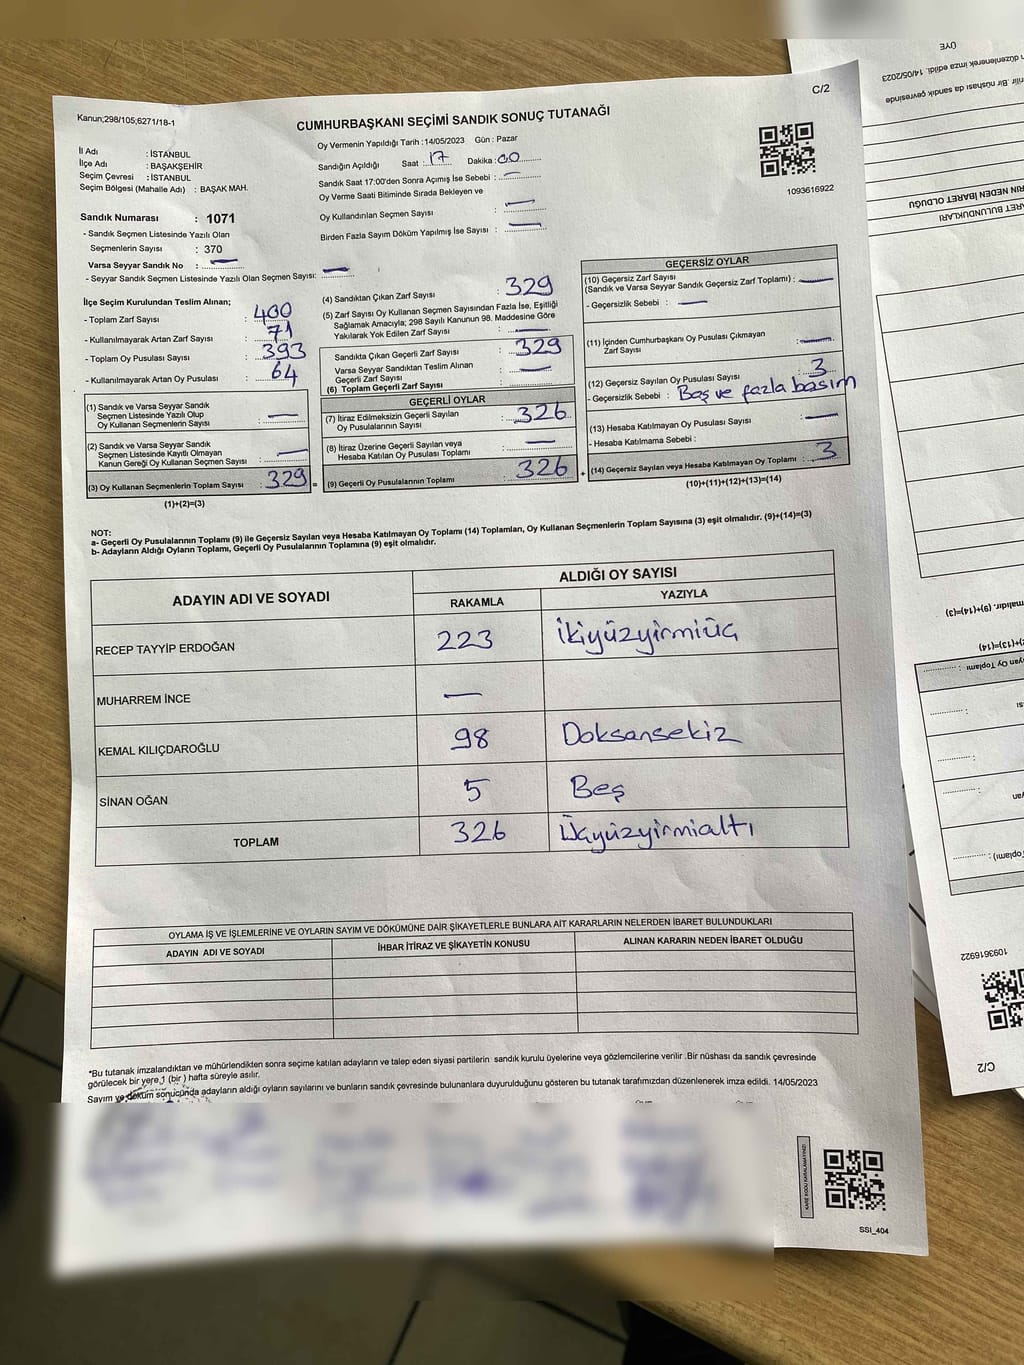 Kanun;298/105;6271/18-1
CUMHURBAŞKANI SEÇİMİ SANDIK SONUÇ TUTANAĞI
C/2
İl Adı : İSTANBUL
İlçe Adı : BAŞAKŞEHİR
Seçim Çevresi : İSTANBUL
Seçim Bölgesi (Mahalle Adı) : BAŞAK MAH.
Oy Vermenin Yapıldığı Tarih :14/05/2023 Gün : Pazar
Sandığın Açıldığı Saat : 17 Dakika : 00
Sandık Saat 17:00'den Sonra Açımış İse Sebebi : —
Oy Verme Saati Bitiminde Sırada Bekleyen ve
Oy Kullandırılan Seçmen Sayısı : —
Birden Fazla Sayım Döküm Yapılmış İse Sayısı : —
1093616922
Sandık Numarası : 1071
- Sandık Seçmen Listesinde Yazılı Olan
Seçmenlerin Sayısı : 370
Varsa Seyyar Sandık No : —
- Seyyar Sandık Seçmen Listesinde Yazılı Olan Seçmen Sayısı: —
İlçe Seçim Kurulundan Teslim Alınan;
- Toplam Zarf Sayısı : 400
- Kullanılmayarak Artan Zarf Sayısı : 71
- Toplam Oy Pusulası Sayısı : 393
- Kullanılmayarak Artan Oy Pusulası : 64
(1) Sandık ve Varsa Seyyar Sandık
Seçmen Listesinde Yazılı Olup
Oy Kullanan Seçmenlerin Sayısı : —
(2) Sandık ve Varsa Seyyar Sandık
Seçmen Listesinde Kayıtlı Olmayan
Kanun Gereği Oy Kullanan Seçmen Sayısı : —
(3) Oy Kullanan Seçmenlerin Toplam Sayısı : 329 =
(1)+(2)=(3)
(4) Sandıktan Çıkan Zarf Sayısı : 329
(5) Zarf Sayısı Oy Kullanan Seçmen Sayısından Fazla İse, Eşitliği
Sağlamak Amacıyla; 298 Sayılı Kanunun 98. Maddesine Göre
Yakılarak Yok Edilen Zarf Sayısı : —
Sandıkta Çıkan Geçerli Zarf Sayısı : 329
Varsa Seyyar Sandıktan Teslim Alınan
Geçerli Zarf Sayısı : —
(6) Toplam Geçerli Zarf Sayısı :
GEÇERLİ OYLAR
(7) İtiraz Edilmeksizin Geçerli Sayılan
Oy Pusulasının Sayısı : 326
(8) İtiraz Üzerine Geçerli Sayılan veya
Hesaba Katılan Oy Pusulası Toplamı : —
(9) Geçerli Oy Pusulalarının Toplamı : 326 +
GEÇERSİZ OYLAR
(10) Geçersiz Zarf Sayısı
(Sandık ve Varsa Seyyar Sandık Geçersiz Zarf Toplamı) : —
- Geçersizlik Sebebi : —
(11) İçinden Cumhurbaşkanı Oy Pusulası Çıkmayan
Zarf Sayısı : —
(12) Geçersiz Sayılan Oy Pusulası Sayısı : 3
- Geçersizlik Sebebi : Boş ve fazla basım
(13) Hesaba Katılmayan Oy Pusulası Sayısı : —
- Hesaba Katılmama Sebebi :
(14) Geçersiz Sayılan veya Hesaba Katılmayan Oy Toplamı : 3
(10)+(11)+(12)+(13)=(14)
NOT:
a- Geçerli Oy Pusulalarının Toplamı (9) ile Geçersiz Sayılan veya Hesaba Katılmayan Oy Toplamı (14) Toplamları, Oy Kullanan Seçmenlerin Toplam Sayısına (3) eşit olmalıdır. (9)+(14)=(3)
b- Adayların Aldığı Oyların Toplamı, Geçerli Oy Pusulalarının Toplamına (9) eşit olmalıdır.
ADAYIN ADI VE SOYADI
ALDIĞI OY SAYISI
RAKAMLA YAZIYLA
RECEP TAYYİP ERDOĞAN 223 İkiyüzyirmiüç
MUHARREM İNCE —
KEMAL KILIÇDAROĞLU 98 Doksansekiz
SİNAN OĞAN 5 Beş
TOPLAM 326 Üçyüzyirmialtı
OYLAMA İŞ VE İŞLEMLERİNE VE OYLARIN SAYIM VE DÖKÜMÜNE DAİR ŞİKAYETLERLE BUNLARA AİT KARARLARIN NELERDEN İBARET BULUNDUKLARI
ADAYIN ADI VE SOYADI İHBAR İTİRAZ VE ŞİKAYETİN KONUSU ALINAN KARARIN NEDEN İBARET OLDUĞU
*Bu tutanak imzalandıktan ve mühürlendikten sonra seçime katılan adayların ve talep eden siyasi partilerin sandık kurulu üyelerine veya gözlemcilerine verilir .Bir nüshası da sandık çevresinde
görülecek bir yere 1 (bir ) hafta süreyle asılır.
Sayım ve döküm sonucunda adayların aldığı oyların sayılarını ve bunların sandık çevresinde bulunanlara duyurulduğunu gösteren bu tutanak tarafımızdan düzenlenerek imza edildi. 14/05/2023
KARE KODU KARALAMAYINIZ!
SSI_404
ÜYE
düzenlenerek imza edildi. 14/05/2023
Bir nüshası da sandık çevresinde
RIN NEDEN İBARET OLDUĞU
ARET BULUNDUKLARI
malıdır. (9)+(14)=(3)
)+(13)=(14)
yan Oy Toplamı :
Toplamı) :
1093616922
C/2